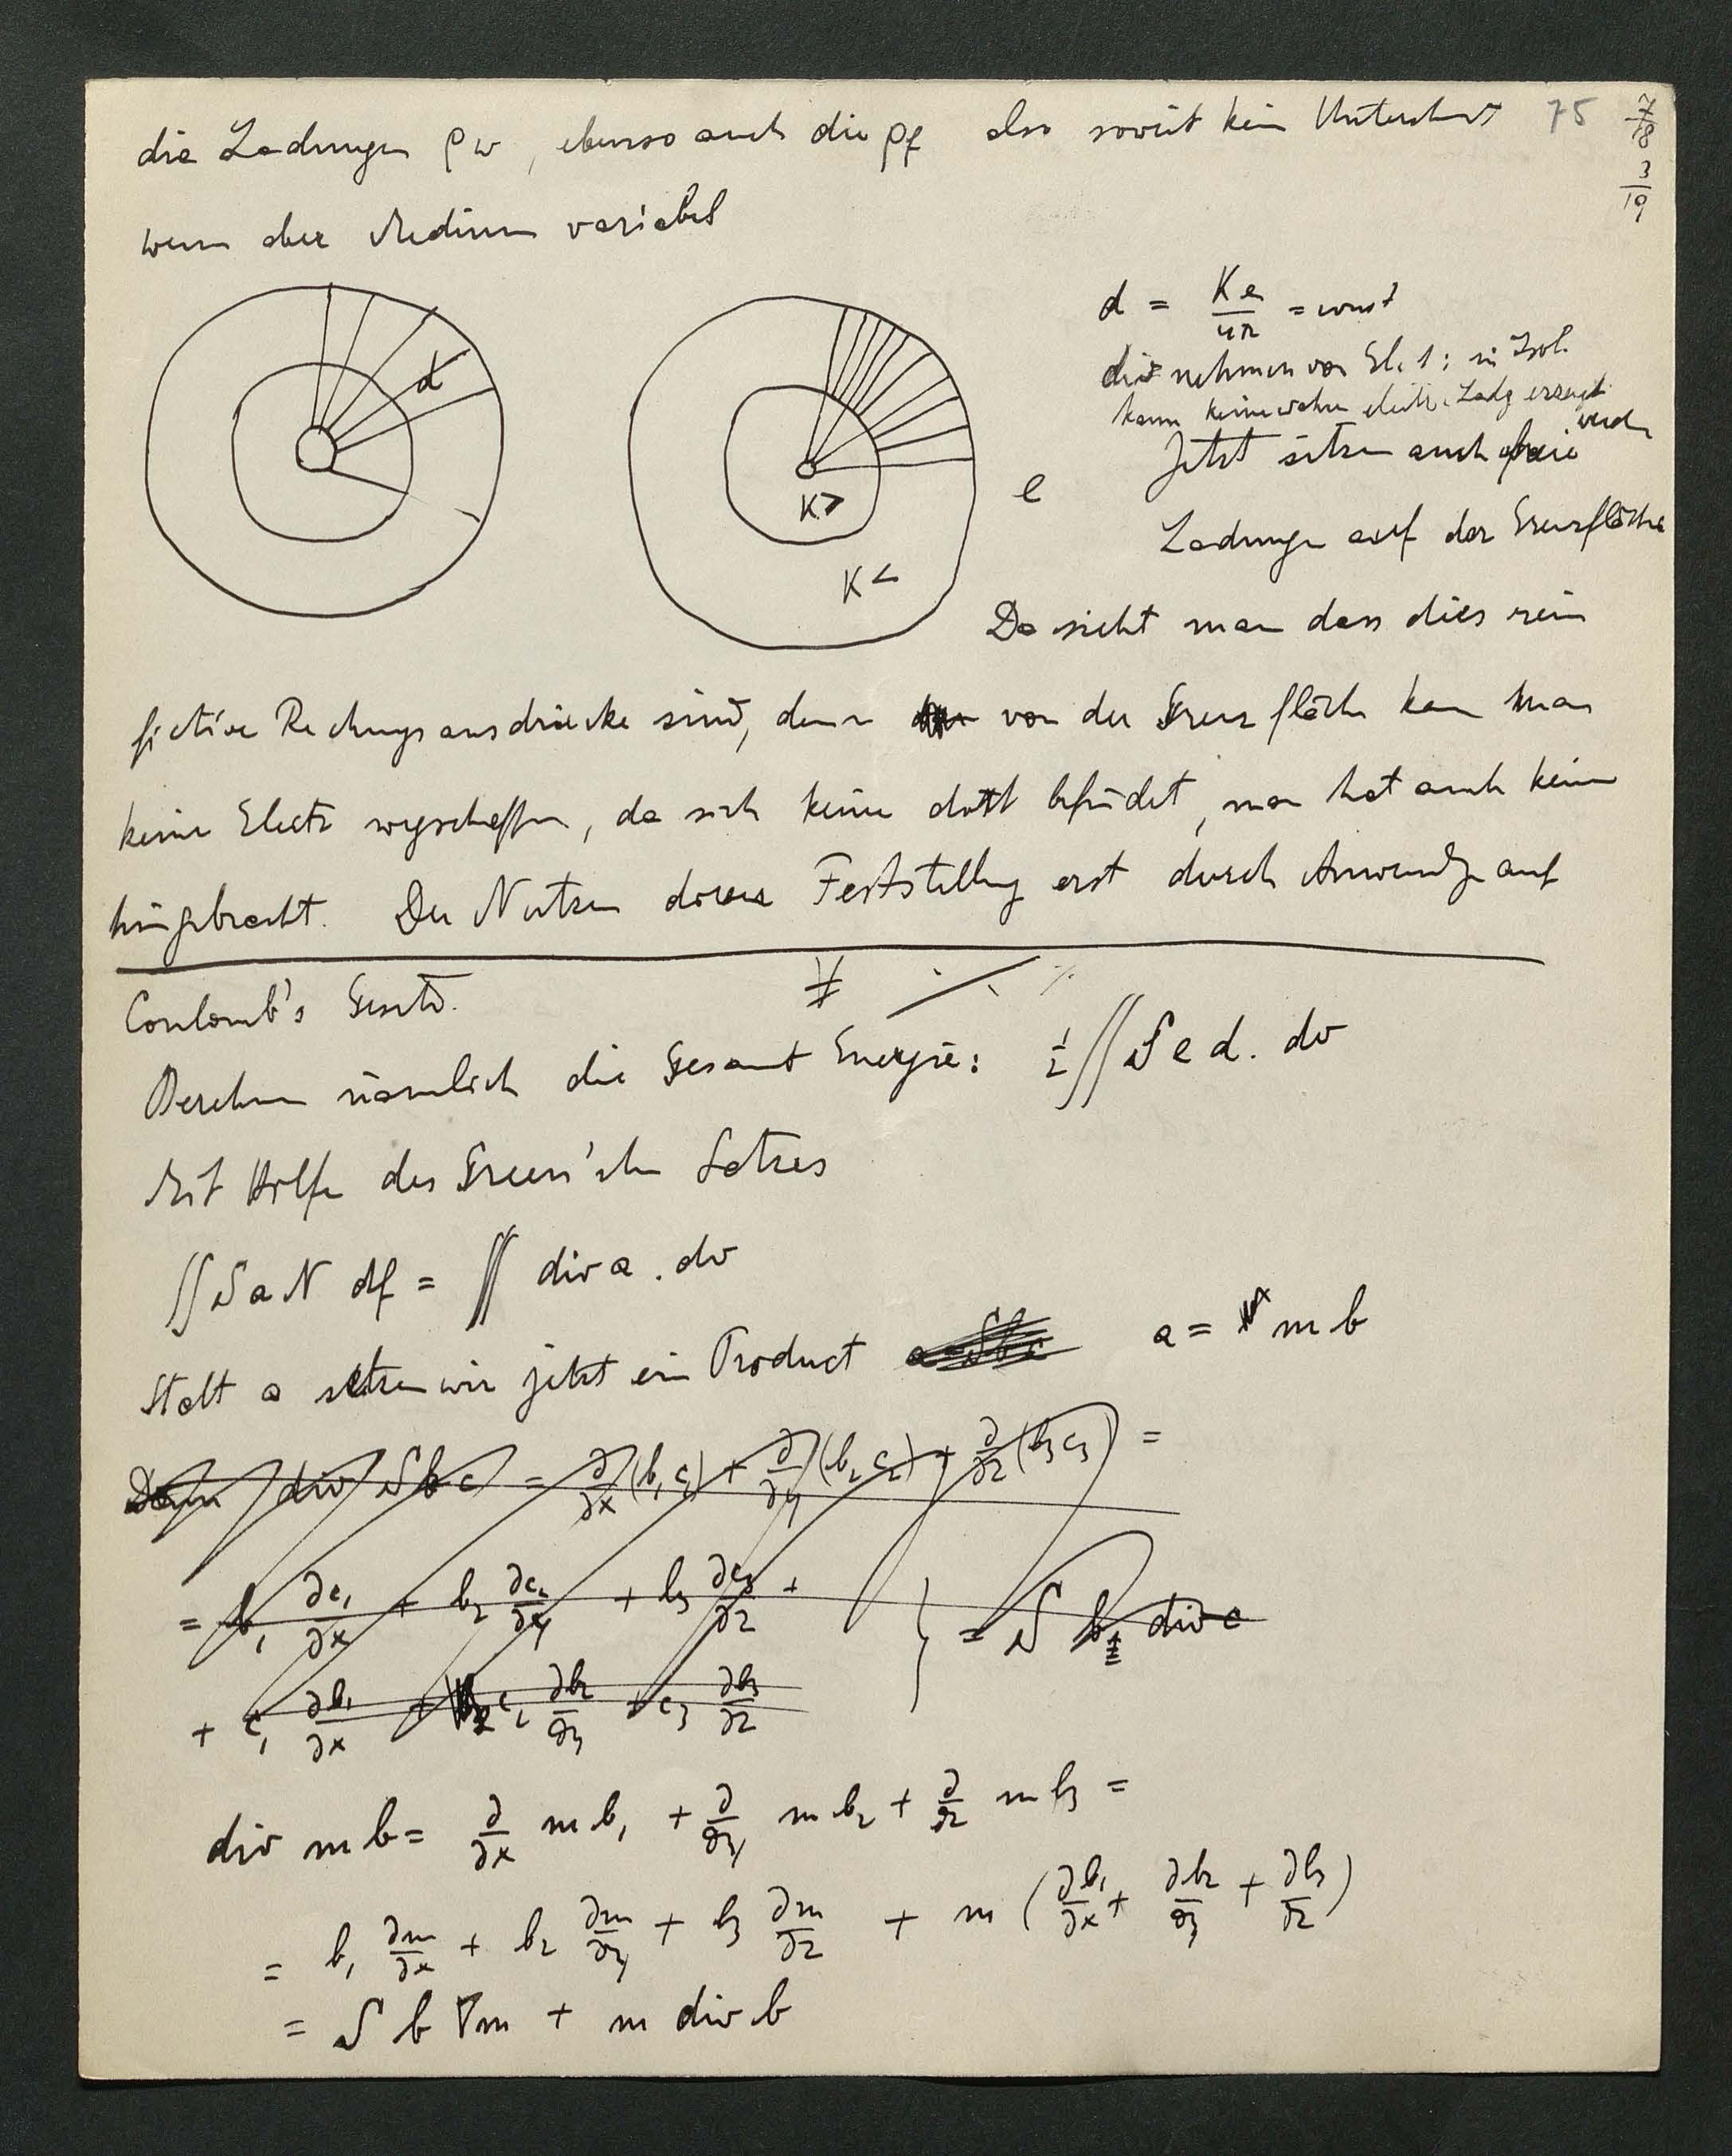 die Ladungen ρw, ebenso auch die ρf also soweit kein Unterschied 75 7/18
3/19
wenn aber Medium variabel
d = Ke/4π = const
dies nehmen von El. 1: in Isol.
kann keine wahre electr. Ladg erzeugt
werden
d
K>
K<
e
Jetzt sitzen auch freie
Ladungen auf der Grenzfläche
Da sieht man dass dies rein
fictive Rechnungsausdrücke sind, denn von der Grenzfläche kann man
keine Electr wegschaffen, da sich keine dort befindet, man hat auch keine
hingebracht. Der Nutzen dieser Feststellung erst durch Anwendg auf
Coulomb's Gesetz.
Berechnen nämlich die Gesamt Energie: ½∬S e d . dv
Mit Hilfe des Green'schen Satzes
∬S a N df = ∬ div a . dv
Statt a setzen wir jetzt ein Product a = m b
Denn div S b c = ∂/∂x (b₁c₁) + ∂/∂y (b₂c₂) + ∂/∂z (b₃c₃) =
= b₁ ∂c₁/∂x + b₂ ∂c₂/∂y + b₃ ∂c₃/∂z +
+ c₁ ∂b₁/∂x + c₂ ∂b₂/∂y + c₃ ∂b₃/∂z } = S b div c
div m b = ∂/∂x m b₁ + ∂/∂y m b₂ + ∂/∂z m b₃ =
= b₁ ∂m/∂x + b₂ ∂m/∂y + b₃ ∂m/∂z + m (∂b₁/∂x + ∂b₂/∂y + ∂b₃/∂z)
= S b ∇m + m div b